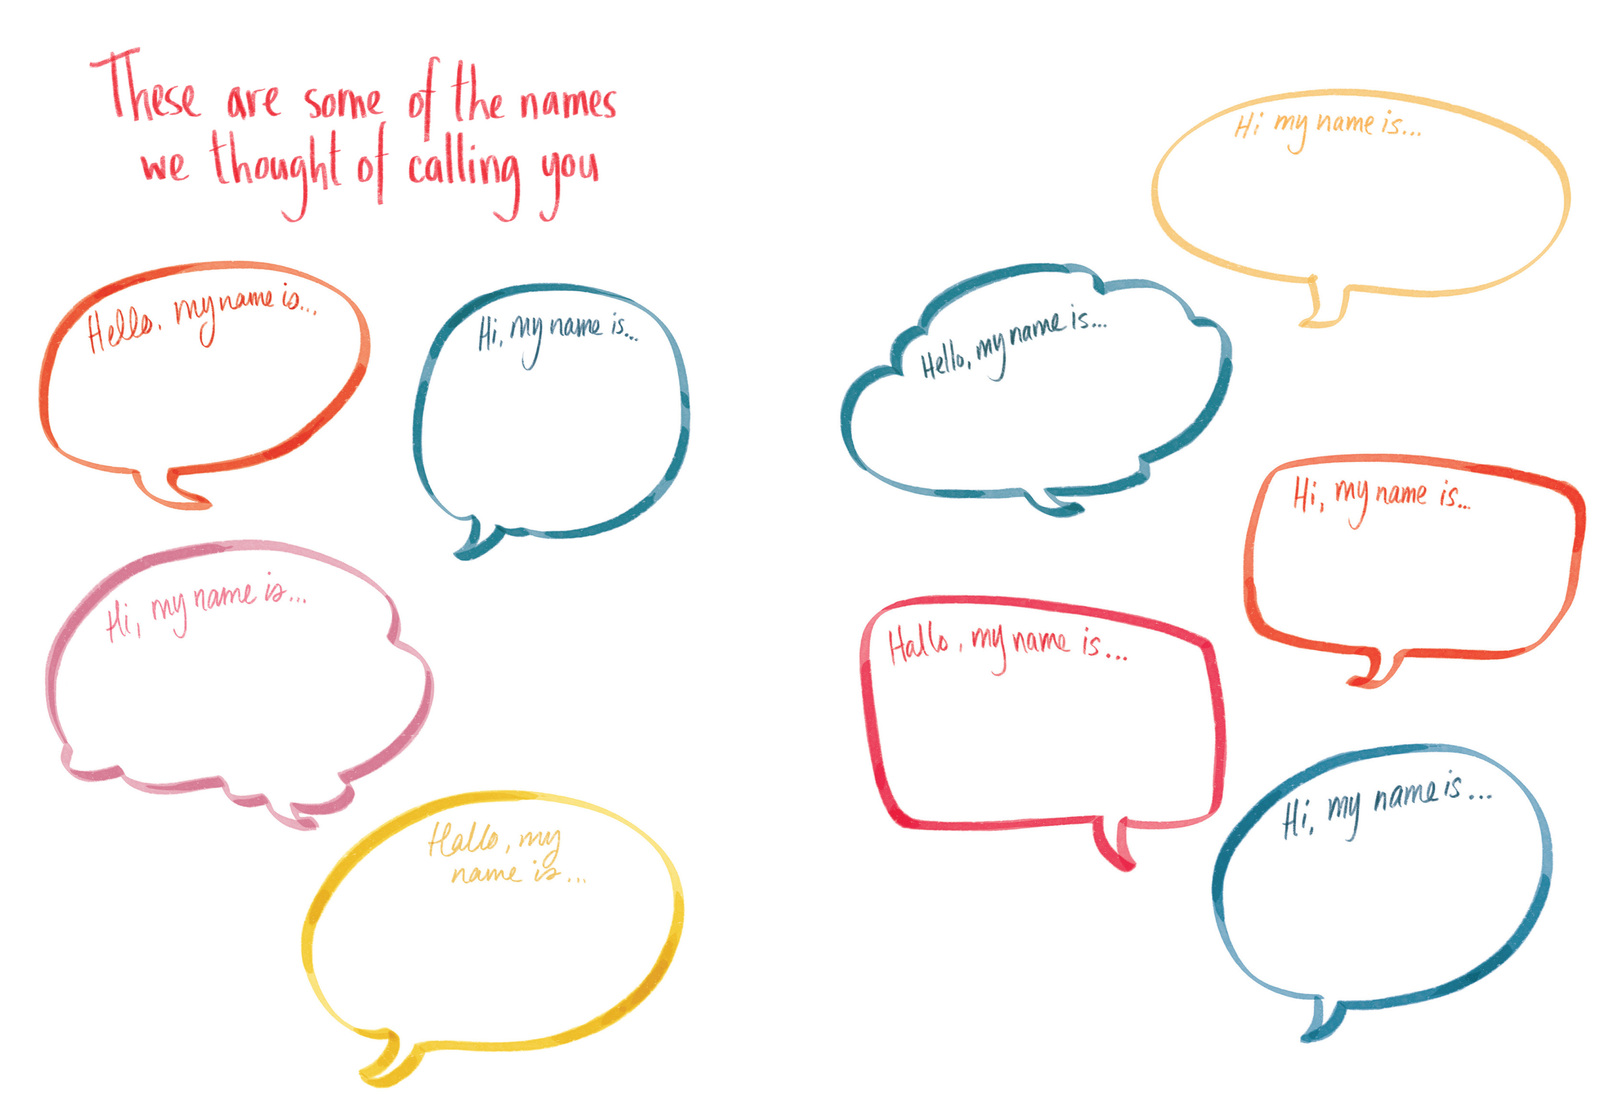 These are some of the names
we thought of calling you
Hello, my name is...
Hi, my name is...
Hi, my name is...
Hallo, my
name is...
Hi my name is...
Hello, my name is...
Hi, my name is...
Hallo, my name is...
Hi, my name is...